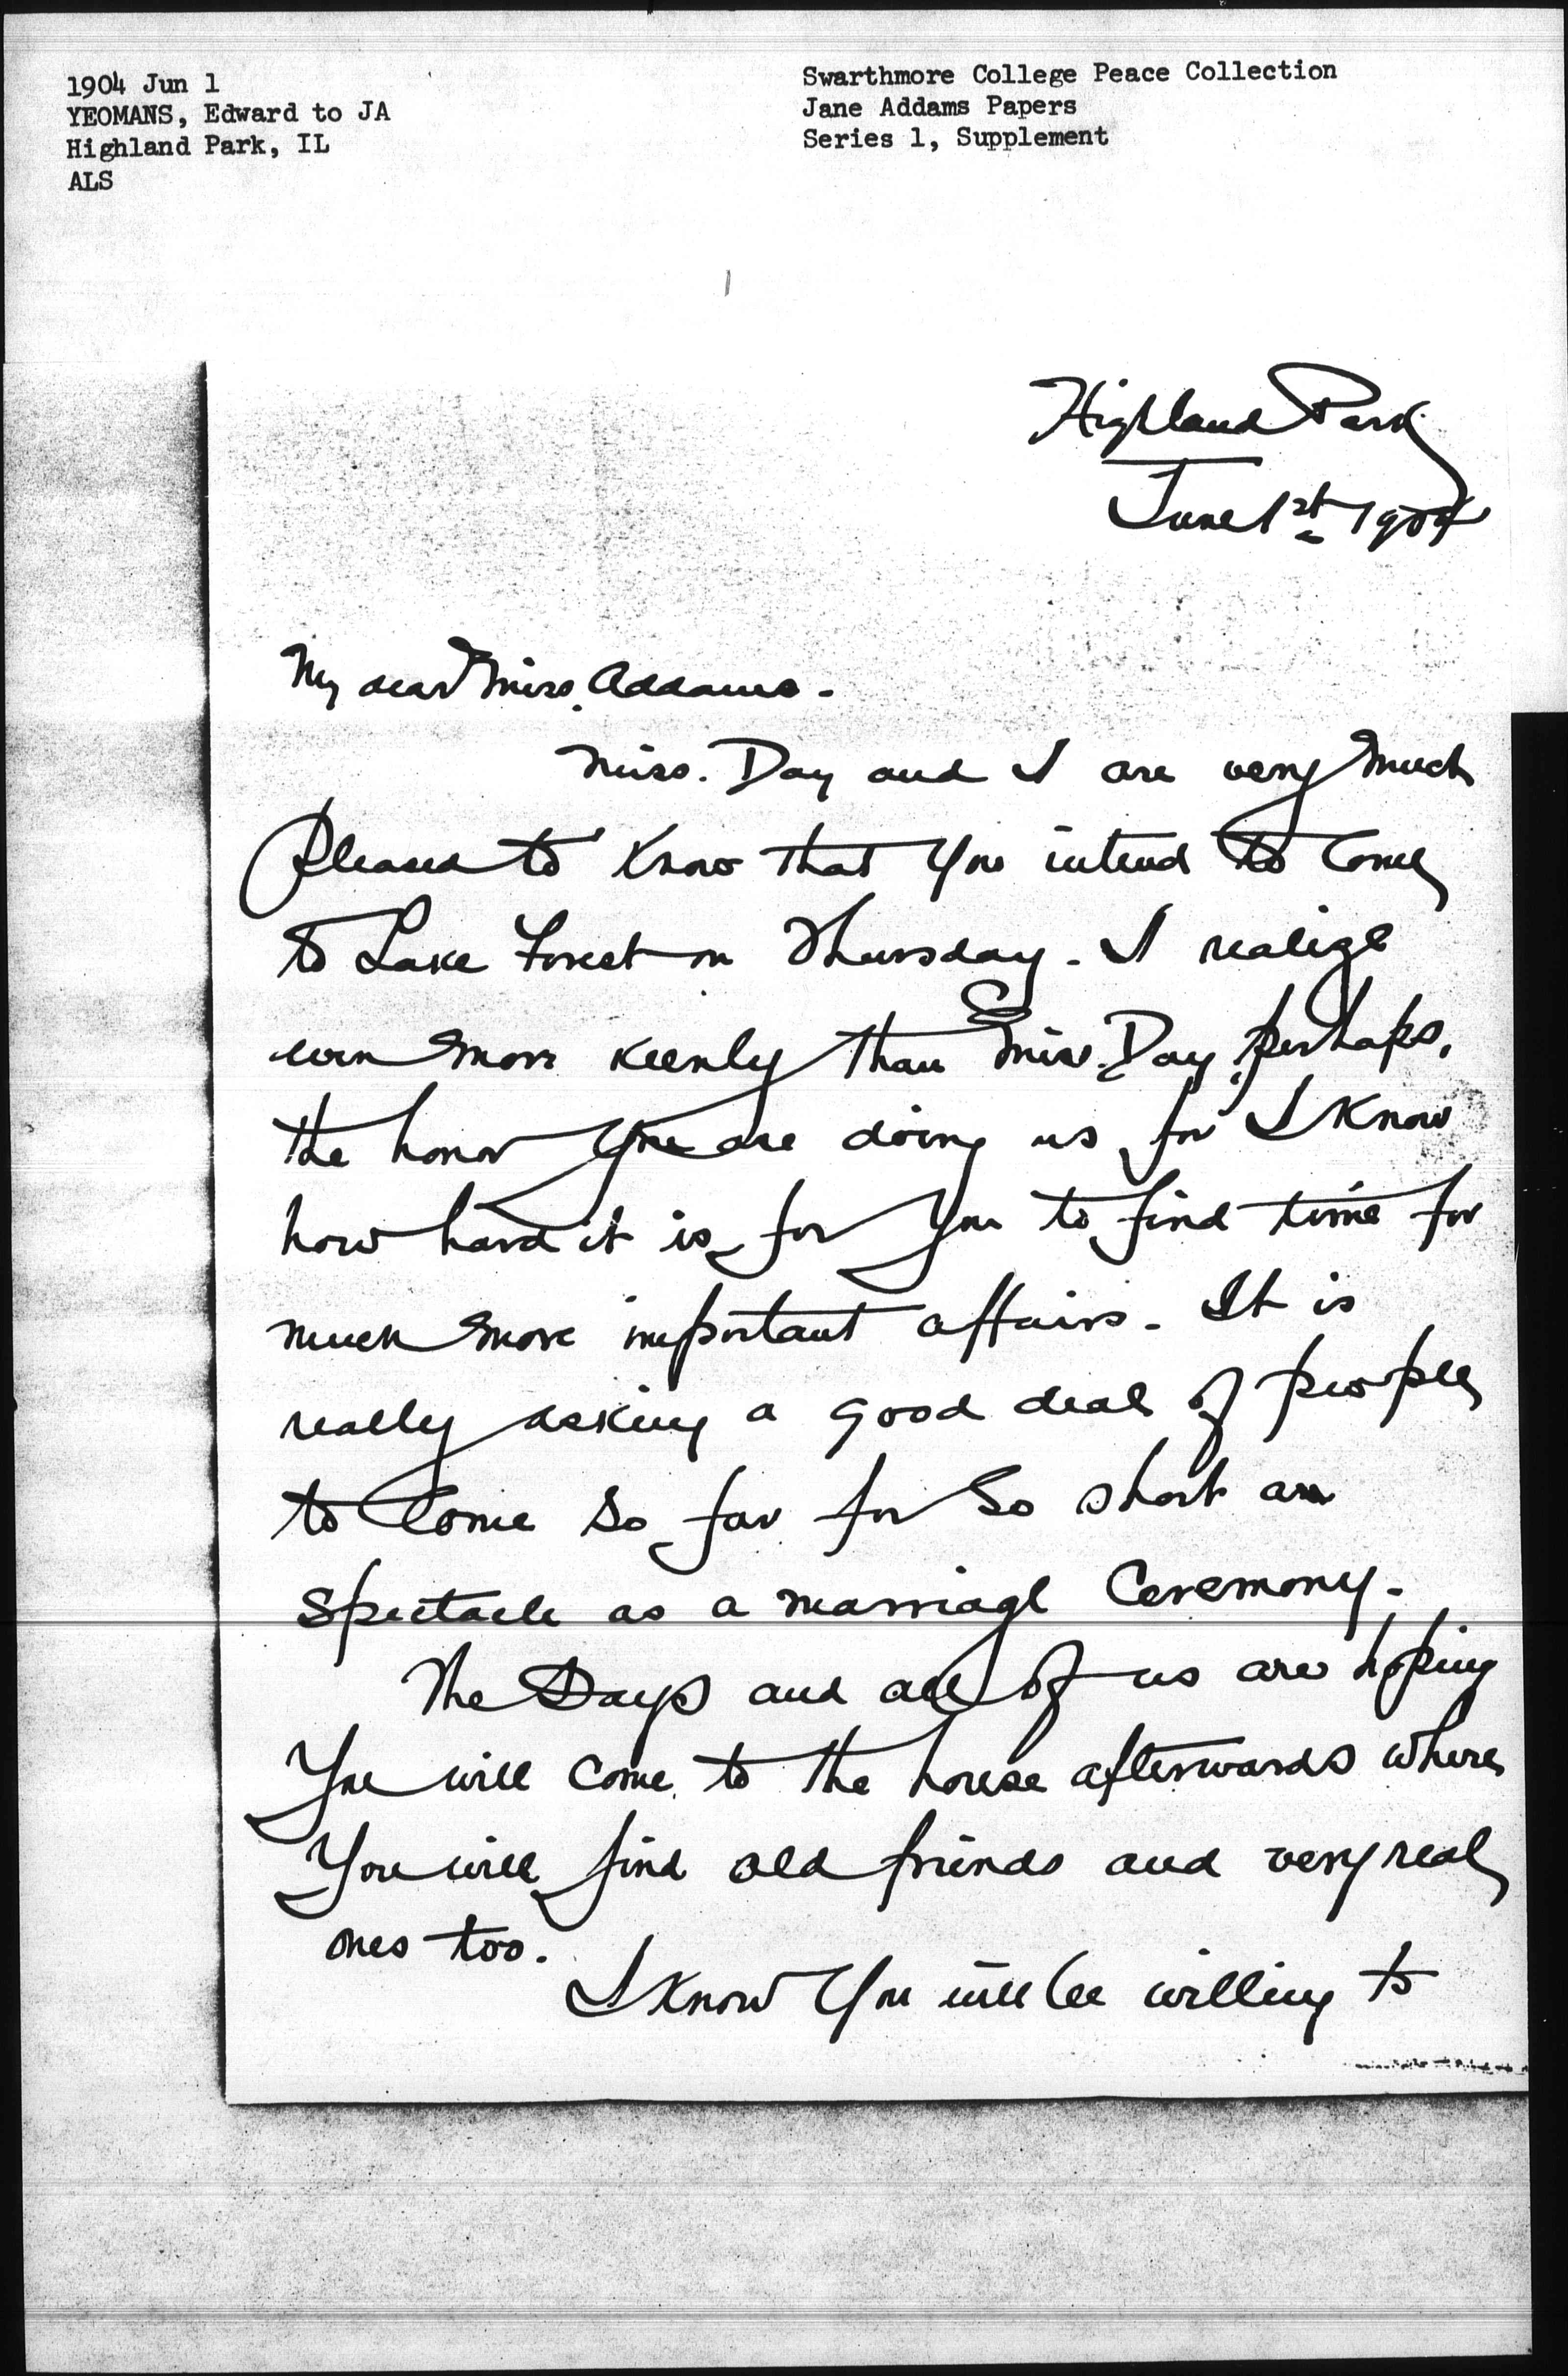 1904 Jun 1
YEOMANS, Edward to JA
Highland Park, IL
ALS
Swarthmore College Peace Collection
Jane Addams Papers
Series 1, Supplement
Highland Park
June 1st 1904
My dear Miss. Addams -
Miss. Day and I are very much
pleased to know that you intend to come
to Lake Forest on Thursday - I realize
even more keenly than Miss. Day, perhaps,
the honor you are doing us for I know
how hard it is for you to find time for
much more important affairs - It is
really asking a good deal of people
to come so far for so short an
spectacle as a marriage ceremony -
The Days and all of us are hoping
you will come to the house afterwards where
you will find old friends and very real
ones too.
I know you will be willing to